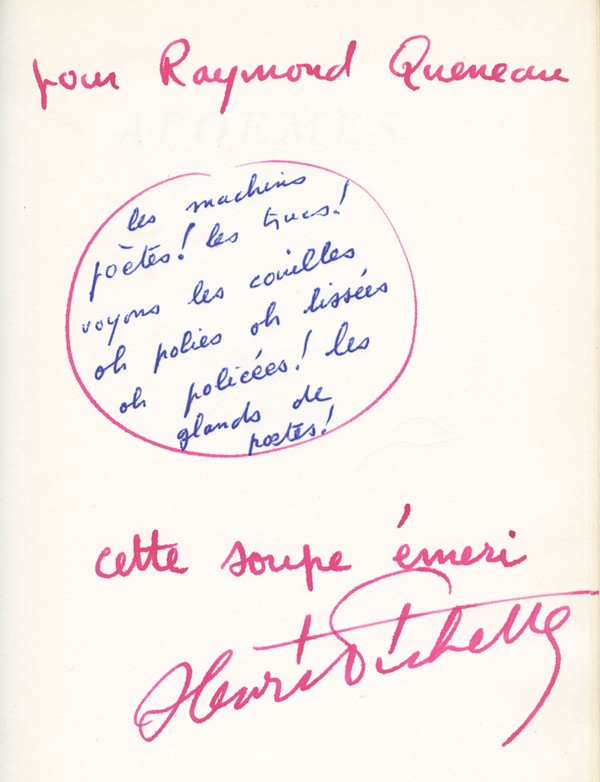 pour Raymond Queneau
APOÈMES
les machins
poètes! les trucs!
voyons les couilles
oh polies oh lissées
oh policées! les
glands de
poètes!
cette soupe émeri
Henri Pichette